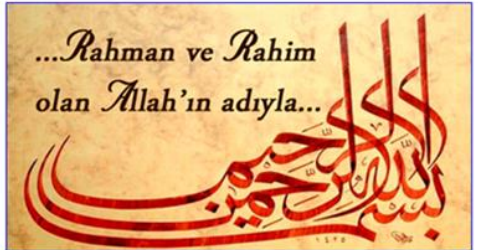 ...Rahman ve Rahim
olan Allah'ın adıyla...
بسم الله الرحمن الرحيم